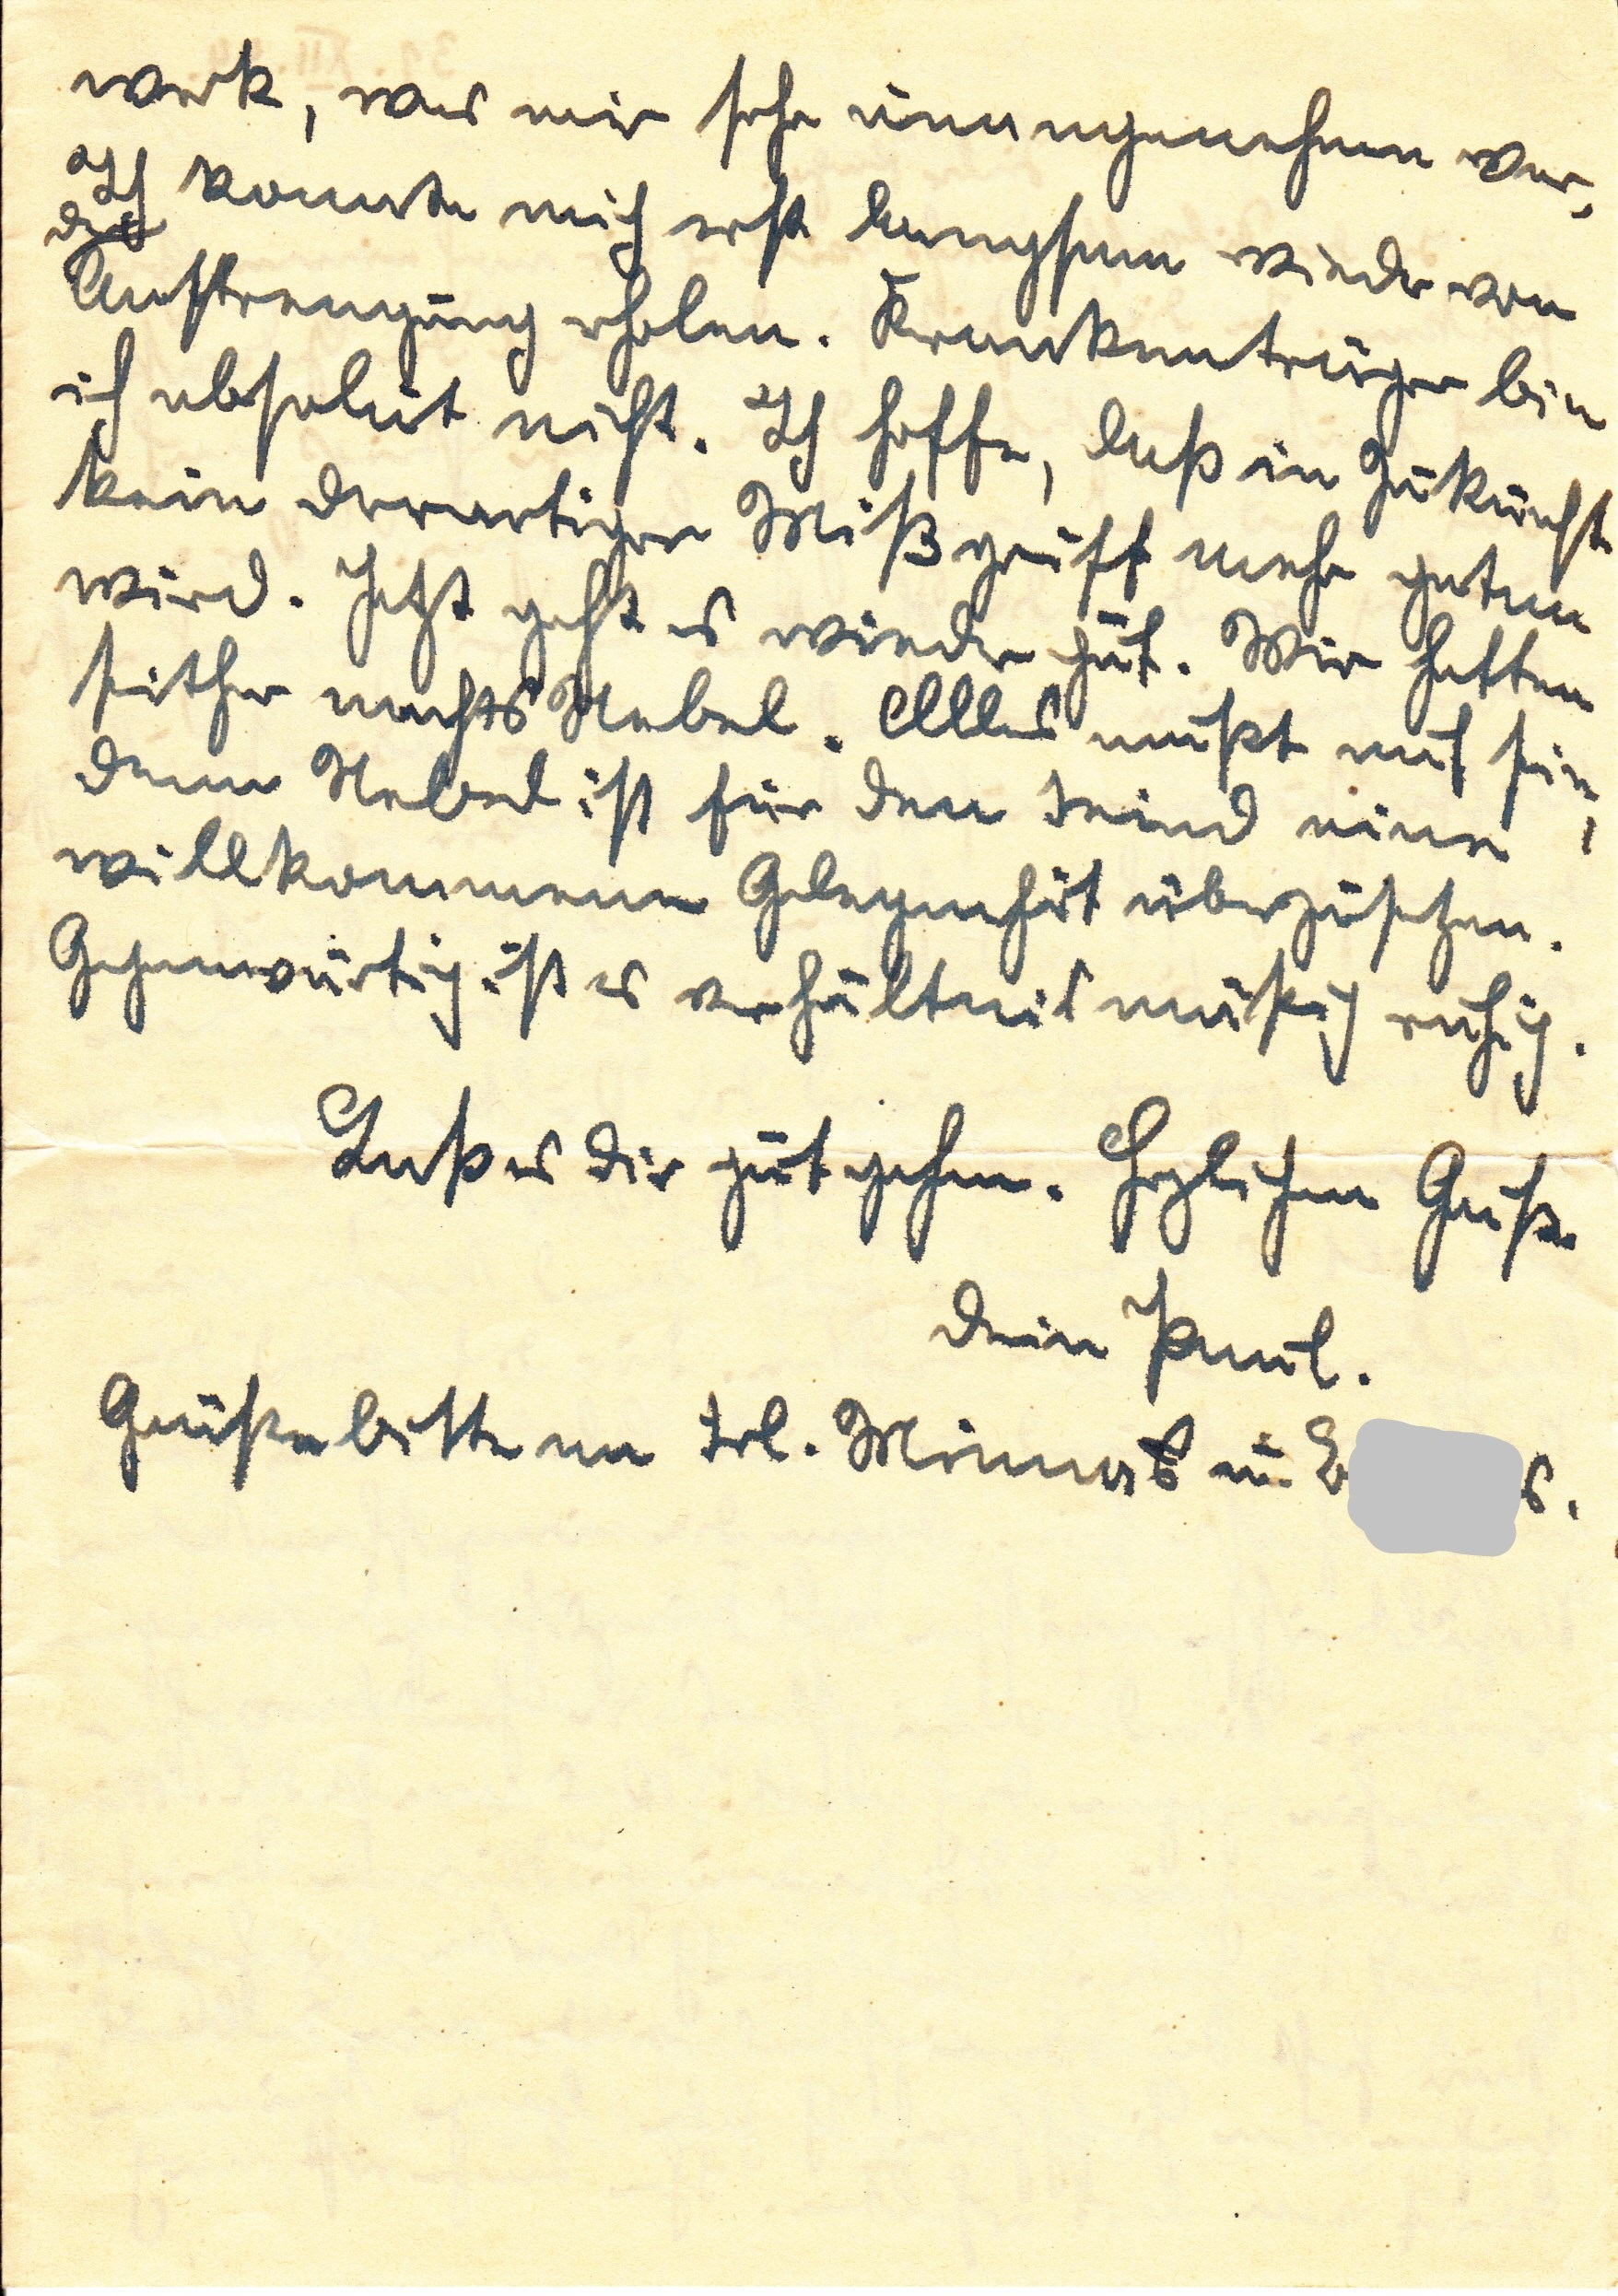 werk, was mir sehr unangenehm war,
Ich konnte mich erst langsam wieder von
der
Anstrengung erholen. Krankenträger bin
ich absolut nicht. Ich hoffe, daß in Zukunft
kein derartiger Mißgriff mehr getan
wird. Jetzt geht es wieder gut. Wir hatten
seither nachts Nebel. Alles mußt auf sein,
denn Nebel ist für den Feind eine
willkommene Gelegenheit überzusetzen.
Gegenwärtig ist es verhältnismäßig ruhig.
Laß es dir gut gehen. Herzlichen Gruß.
Dein Paul.
Grüße bitte an Frl. Minna u.